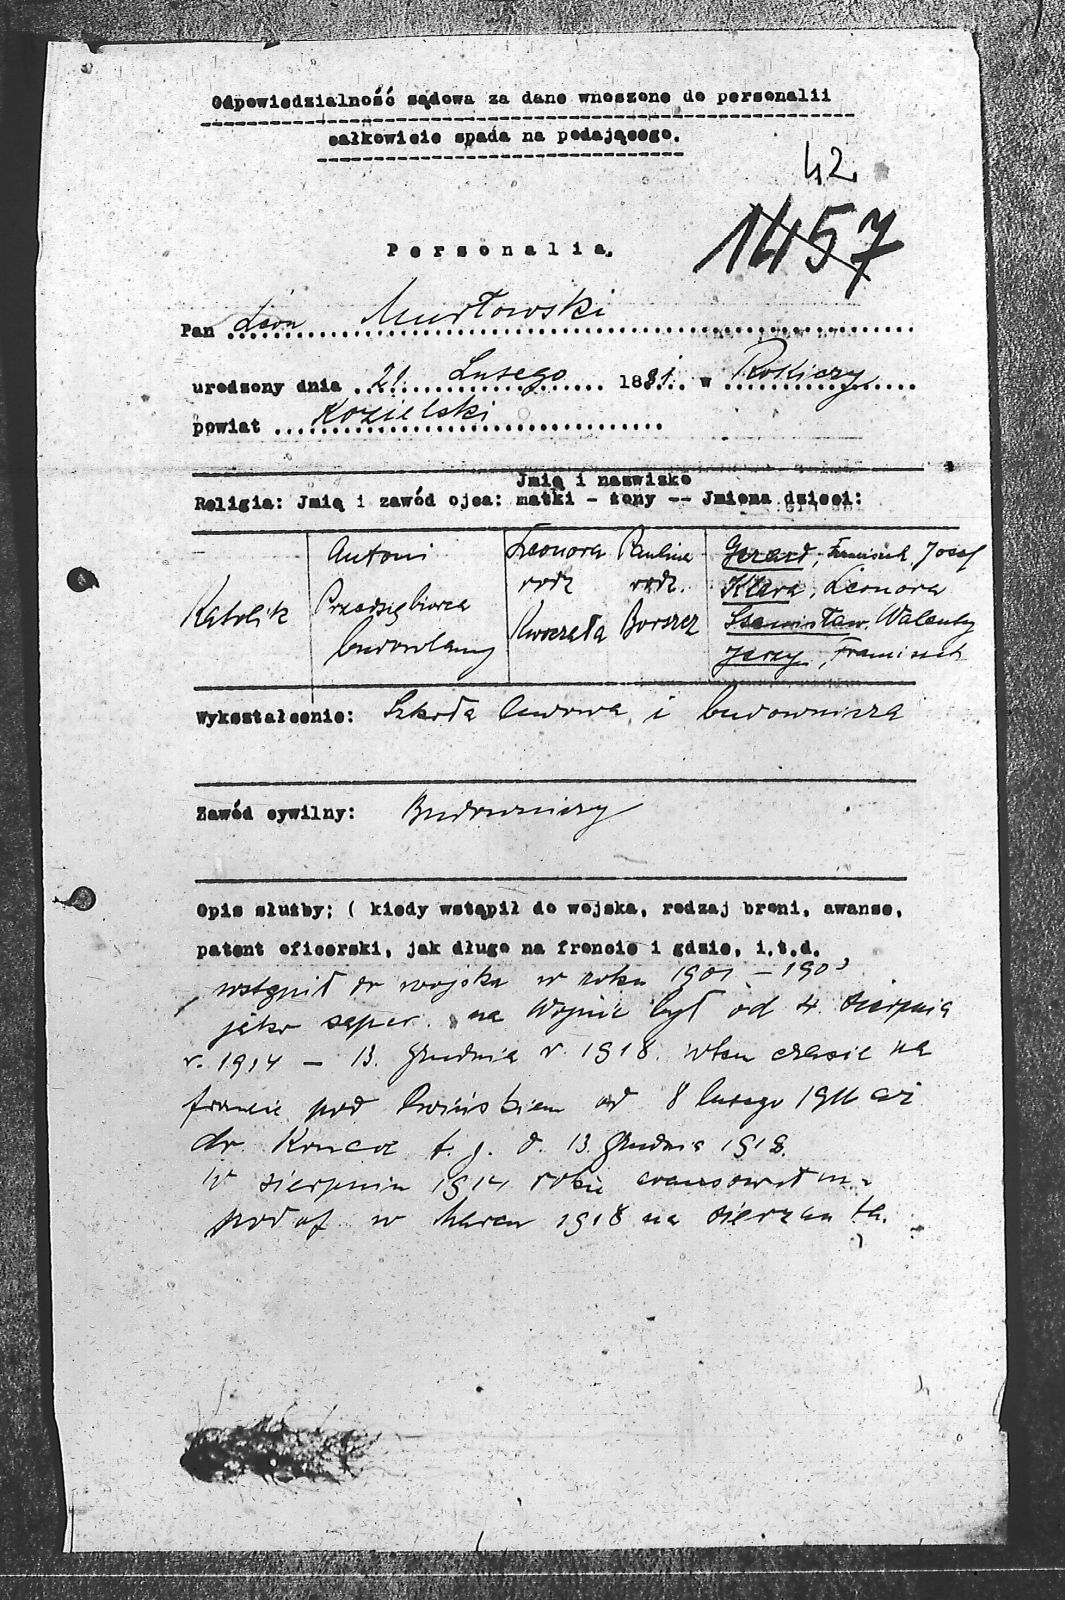 Odpowiedzialność sądowa za dane wnoszone do personalii
całkowicie spada na podającego.
42
1457
Personalia.
Pan Leon Murłowski
urodzony dnia 21. Lutego 1881. w Rokiczy
powiat Kozielski
Jmię i nazwisko
Religia: Jmię i zawód ojca: matki - żony -- Jmiona dzieci:
Antoni Leonora Paulina Gerard, Franciszek, Josef
Katolik Przedsiębiorca rodz rodz. Klara, Leonora
budowlany Kwoczała Borszcz Stanisław, Walenty
Jerzy, Franciszek
Wykształcenie: Szkoła ludowa i budownicza
Zawód cywilny: Budowniczy
Opis służby; ( kiedy wstąpił do wojska, rodzaj broni, awanse,
patent oficerski, jak długo na froncie i gdzie, i.t.d.
wstąpił do wojska w roku 1901 - 1903
jako saper. na Wojnie był od 4. sierpnia
r. 1914 - 13. grudnia r. 1918. w tem czasie na
froncie pod Dwińskiem od 8 lutego aż
do Końca t. j. d. 13. grudnia 1918.
W sierpniu 1914 roku awansował na
podof. w Marcu 1918 na sierżanta.